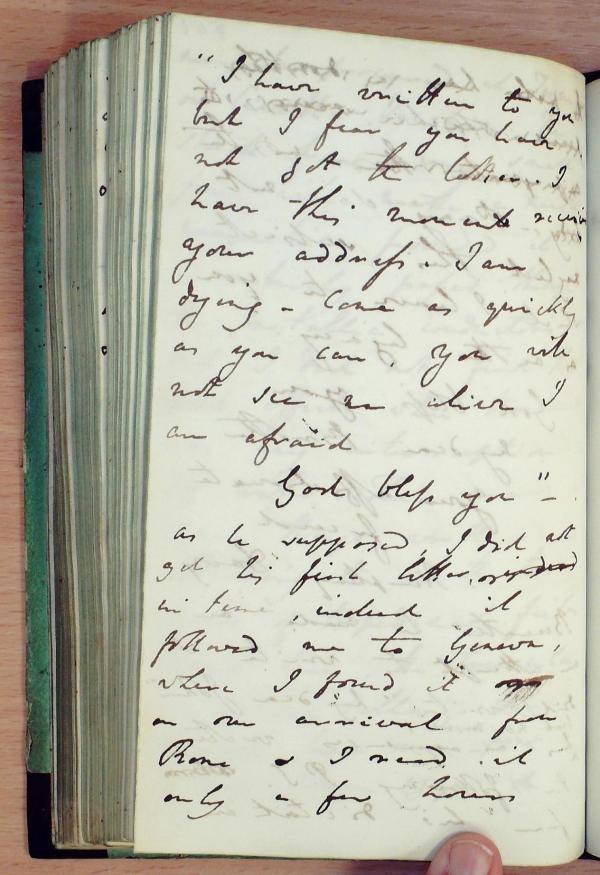 "I have written to you
but I fear you have
not got the letter. I
have this moment receiv
your address. I am
dying - Come as quickly
as you can. You will
not see me alive I
am afraid
God bless you" -
as he supposed, I did not
get his first letter,
in time, indeed it
followed me to Geneva,
where I found it
on our arrival from
Rome & I read it
only a few hours